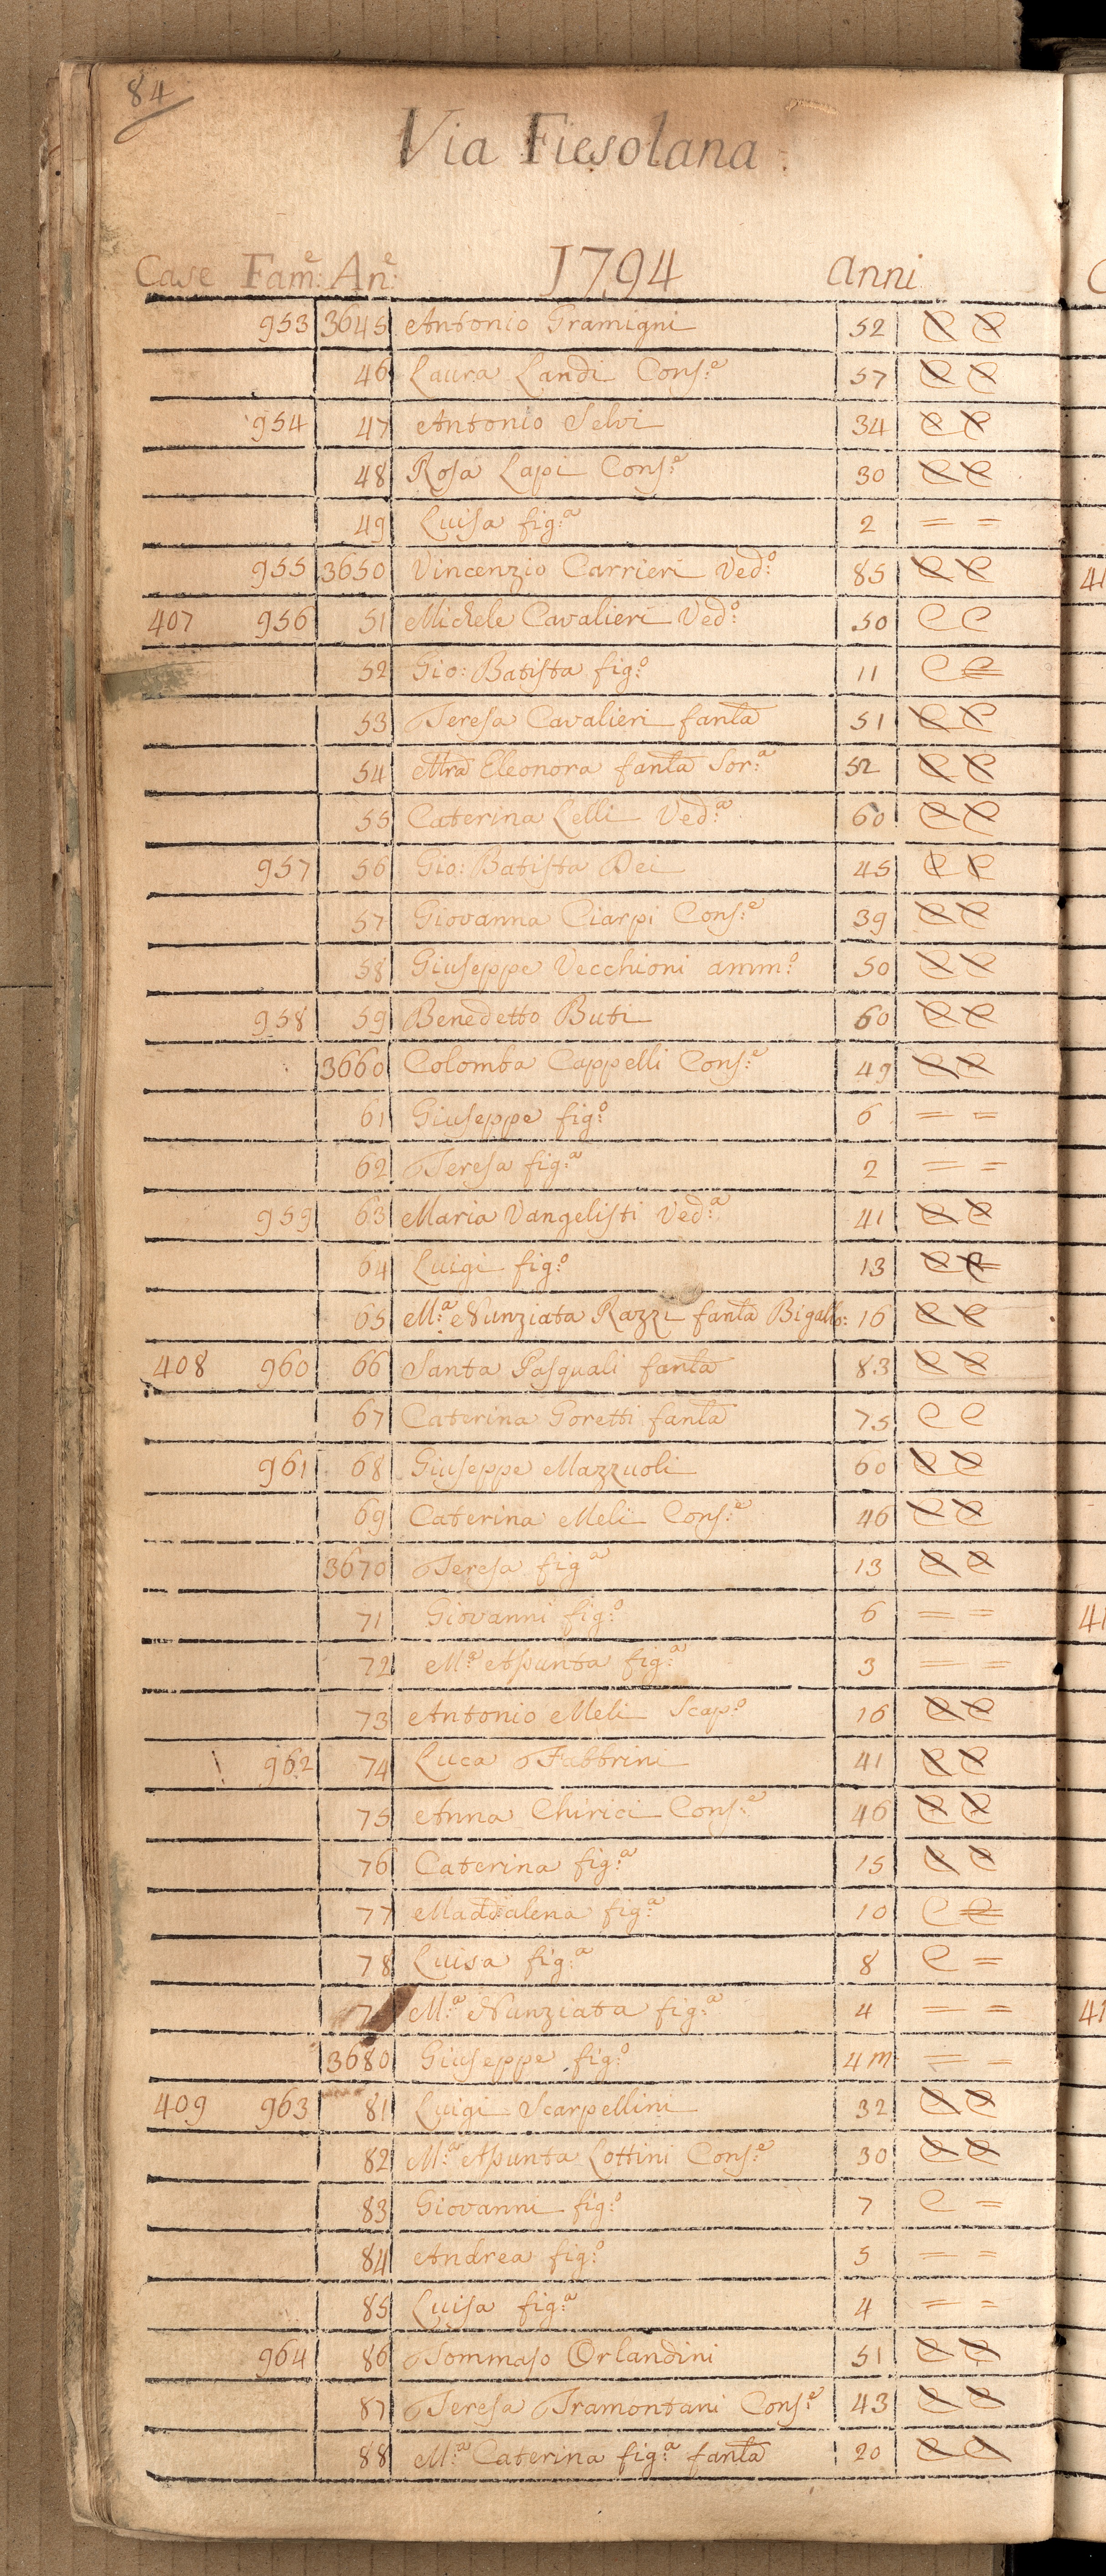 84
Via Fiesolana
Case Fam:e An:e 1794 Anni
953 3645 Antonio Gramigni 52 C C
46 Laura Landi Cons:e 57 C C
954 47 Antonio Selvi 34 C C
48 Rosa Lapi Cons:e 30 C C
49 Luisa fig:a 2 = =
955 3650 Vincenzio Carrieri Ved:o 85 C C
407 956 51 Michele Cavalieri Ved:o 50 C C
52 Gio: Batista fig:o 11 C =
53 Teresa Cavalieri fanla 51 C C
54 Mra Eleonora fanla Sor:a 52 C C
55 Caterina Lelli Ved:a 60 C C
957 56 Gio: Batista Dei 45 C C
57 Giovanna Ciarpi Cons:e 39 C C
58 Giuseppe Vecchioni amm:o 50 C C
958 59 Benedetto Buti 60 C C
3660 Colomba Cappelli Cons:e 49 C C
61 Giuseppe fig:o 6 = =
62 Teresa fig:a 2 = =
959 63 Maria Vangelisti Ved:a 41 C C
64 Luigi fig:o 13 C C
65 M:a Nunziata Razzi fanla Bigallo: 16 C C
408 960 66 Santa Pasquali fanla 83 C C
67 Caterina Goretti fanla 75 C C
961 68 Giuseppe Mazzuoli 60 C C
69 Caterina Meli Cons:e 46 C C
3670 Teresa fig:a 13 C C
71 Giovanni fig:o 6 = =
72 M:a Asunta fig:a 3 = =
73 Antonio Meli Scap:o 16 C C
962 74 Luca Fabbrini 41 C C
75 Anna Chirici Cons:e 46 C C
76 Caterina fig:a 15 C C
77 Maddalena fig:a 10 C =
78 Luisa fig:a 8 C =
7 M:a Nunziata fig:a 4 = =
3680 Giuseppe fig:o 4 m = =
409 963 81 Luigi Scarpellini 32 C C
82 M:a Asunta Lottini Cons:e 30 C C
83 Giovanni fig:o 7 C =
84 Andrea fig:o 5 = =
85 Luisa fig:a 4 = =
964 86 Tommaso Orlandini 51 C C
87 Teresa Tramontani Cons:e 43 C C
88 M:a Caterina fig:a fanla 20 C C